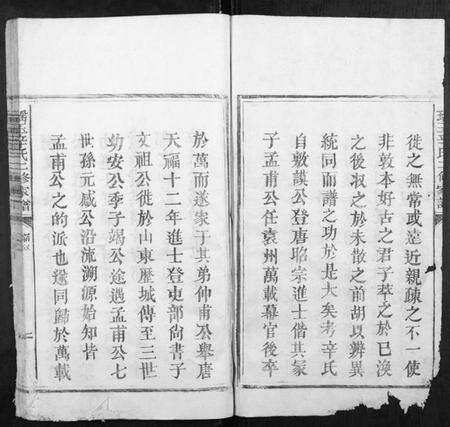 徙之無常或遠近親疎之不一使
非敦本好古之君子萃之於已渙
之後收之於未散之前胡以辨異
統同而譜之功於是大矣考辛氏
自敷謨公登唐昭宗進士偕其冢
子孟甫公任袁州萬載幕官後卒
於萬而遂家于其弟仲甫公舉唐
天福十二年進士登吏部尚書子
文祖公徙於山東歷城傳至三世
幼安公季子竭公途遇孟甫公七
世孫元咸公沿流溯源始知皆
孟甫公之的派也遂同歸於萬載